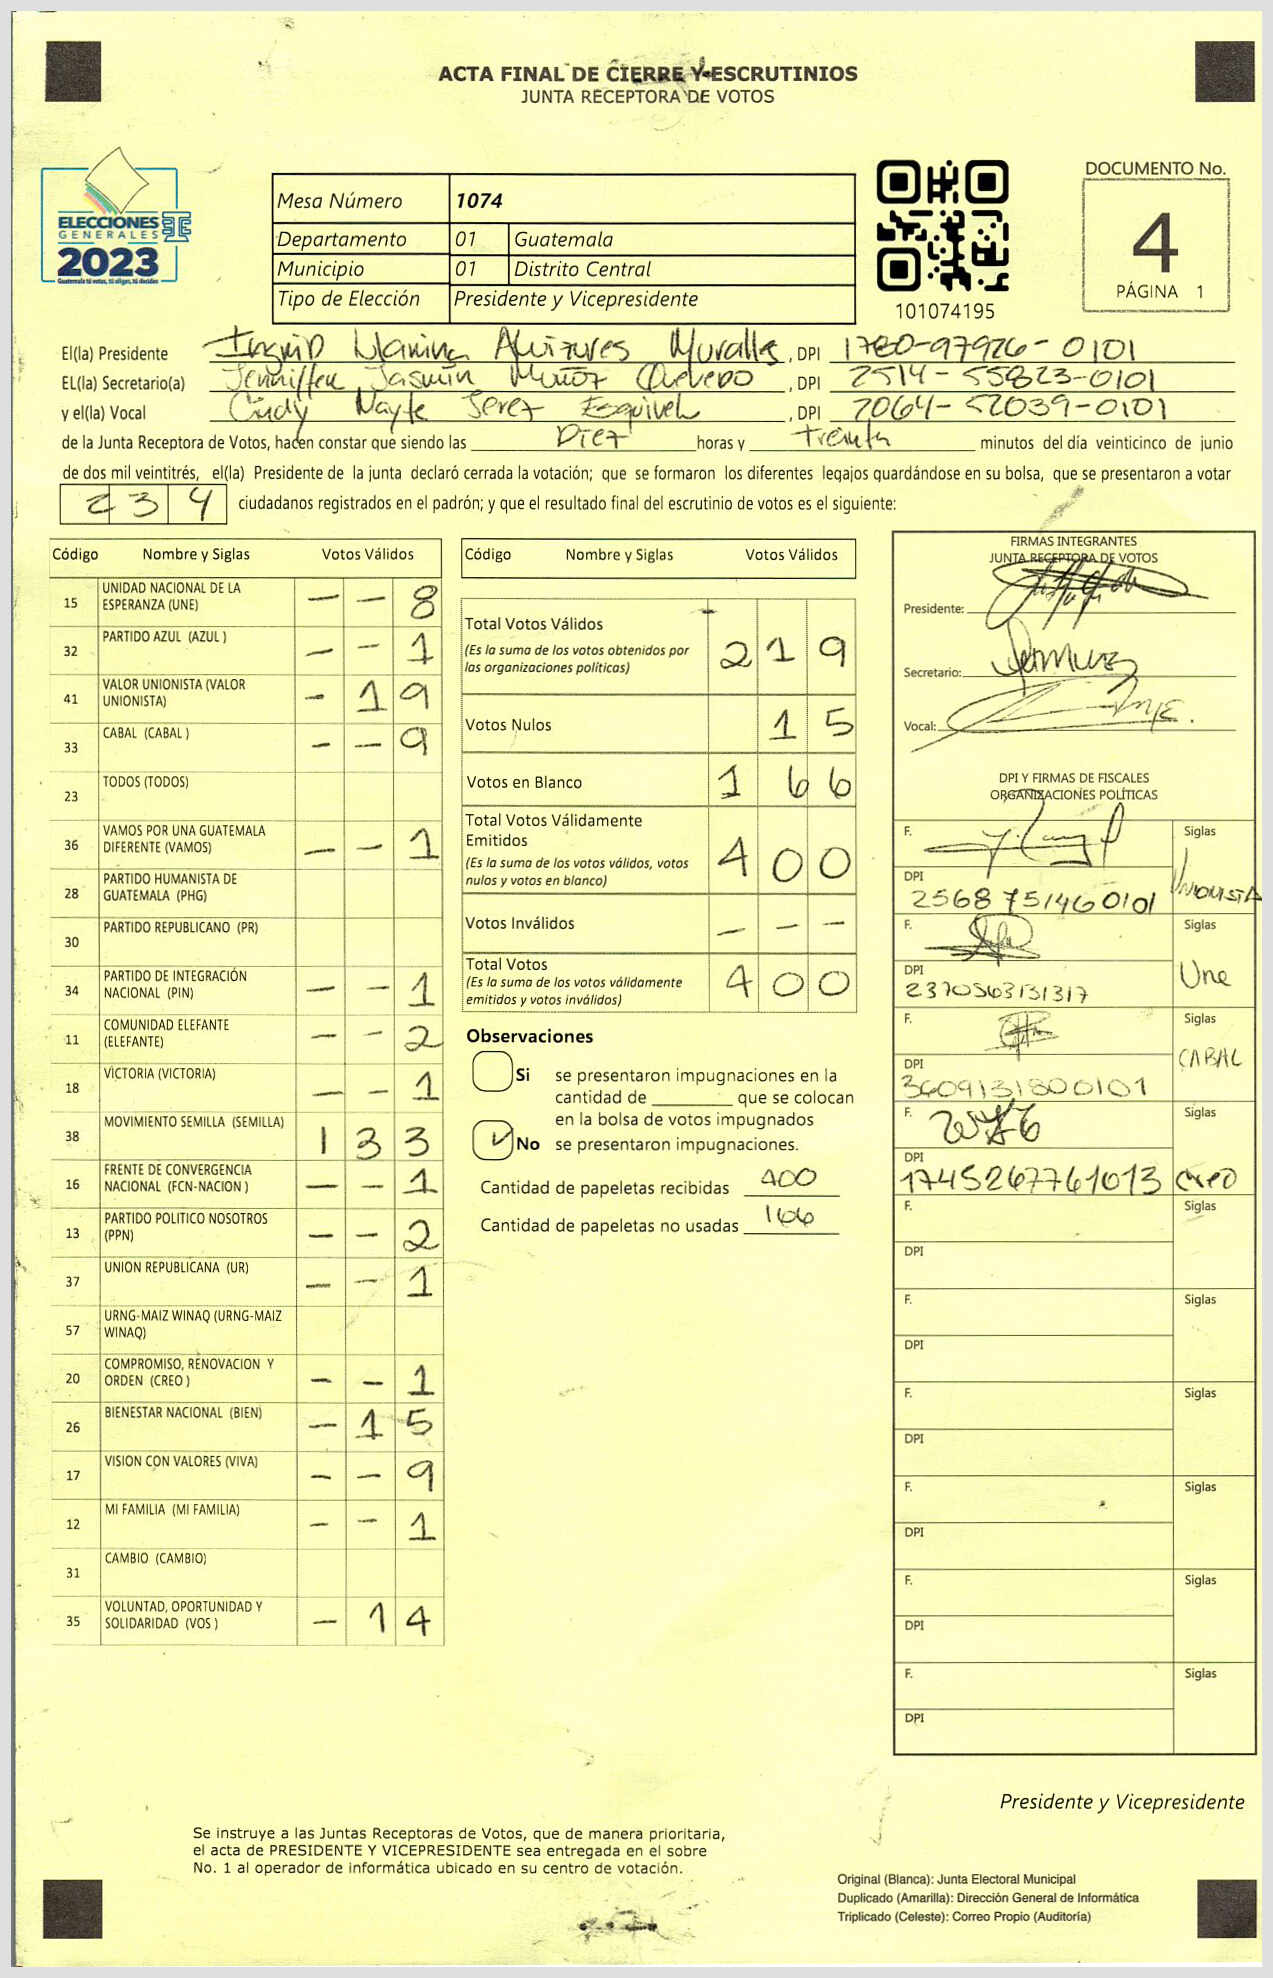 ACTA FINAL DE CIERRE Y ESCRUTINIOS
JUNTA RECEPTORA DE VOTOS
ELECCIONES
GENERALES
2023
Guatemala tú votas, tú eliges, tú decides
Mesa Número 1074
Departamento 01 Guatemala
Municipio 01 Distrito Central
Tipo de Elección Presidente y Vicepresidente
101074195
DOCUMENTO No.
4
PÁGINA 1
El(la) Presidente Ingrid Alvizures Muralles, DPI 1780-97926-0101
EL(la) Secretario(a) Jenniffer Jasmín Muñoz Quevedo, DPI 2514-55823-0101
y el(la) Vocal Cindy Nayte Jerez Esquivel, DPI 2064-52039-0101
de la Junta Receptora de Votos, hacen constar que siendo las Diez horas y treinta minutos del día veinticinco de junio
de dos mil veintitrés, el(la) Presidente de la junta declaró cerrada la votación; que se formaron los diferentes legajos guardándose en su bolsa, que se presentaron a votar
234 ciudadanos registrados en el padrón; y que el resultado final del escrutinio de votos es el siguiente:
Código Nombre y Siglas Votos Válidos
15 UNIDAD NACIONAL DE LA ESPERANZA (UNE) — — 8
32 PARTIDO AZUL (AZUL ) — — 1
41 VALOR UNIONISTA (VALOR UNIONISTA) — 1 9
33 CABAL (CABAL ) — — 9
23 TODOS (TODOS)
36 VAMOS POR UNA GUATEMALA DIFERENTE (VAMOS) — — 1
28 PARTIDO HUMANISTA DE GUATEMALA (PHG)
30 PARTIDO REPUBLICANO (PR)
34 PARTIDO DE INTEGRACIÓN NACIONAL (PIN) — — 1
11 COMUNIDAD ELEFANTE (ELEFANTE) — — 2
18 VICTORIA (VICTORIA) — — 1
38 MOVIMIENTO SEMILLA (SEMILLA) 1 3 3
16 FRENTE DE CONVERGENCIA NACIONAL (FCN-NACION ) — — 1
13 PARTIDO POLITICO NOSOTROS (PPN) — — 2
37 UNION REPUBLICANA (UR) — — 1
57 URNG-MAIZ WINAQ (URNG-MAIZ WINAQ)
20 COMPROMISO, RENOVACION Y ORDEN (CREO ) — — 1
26 BIENESTAR NACIONAL (BIEN) — 1 5
17 VISION CON VALORES (VIVA) — — 9
12 MI FAMILIA (MI FAMILIA) — — 1
31 CAMBIO (CAMBIO)
35 VOLUNTAD, OPORTUNIDAD Y SOLIDARIDAD (VOS ) — 1 4
Código Nombre y Siglas Votos Válidos
Total Votos Válidos 2 1 9
(Es la suma de los votos obtenidos por
las organizaciones políticas)
Votos Nulos 1 5
Votos en Blanco 1 6 6
Total Votos Válidamente
Emitidos 4 0 0
(Es la suma de los votos válidos, votos
nulos y votos en blanco)
Votos Inválidos — — —
Total Votos 4 0 0
(Es la suma de los votos válidamente
emitidos y votos inválidos)
Observaciones
Si se presentaron impugnaciones en la
cantidad de ________ que se colocan
en la bolsa de votos impugnados
No se presentaron impugnaciones.
Cantidad de papeletas recibidas 400
Cantidad de papeletas no usadas 166
FIRMAS INTEGRANTES
JUNTA RECEPTORA DE VOTOS
Presidente:
Secretario:
Vocal:
DPI Y FIRMAS DE FISCALES
ORGANIZACIONES POLÍTICAS
F. Siglas
DPI 2568 75146 0101 UNIONISTA
F. Siglas
DPI 2370563131317 Une
F. Siglas
DPI 3609131800101 CABAL
F. Siglas
DPI 1745267761013 creo
F. Siglas
DPI
F. Siglas
DPI
F. Siglas
DPI
F. Siglas
DPI
F. Siglas
DPI
F. Siglas
DPI
Presidente y Vicepresidente
Se instruye a las Juntas Receptoras de Votos, que de manera prioritaria,
el acta de PRESIDENTE Y VICEPRESIDENTE sea entregada en el sobre
No. 1 al operador de informática ubicado en su centro de votación.
Original (Blanca): Junta Electoral Municipal
Duplicado (Amarilla): Dirección General de Informática
Triplicado (Celeste): Correo Propio (Auditoría)